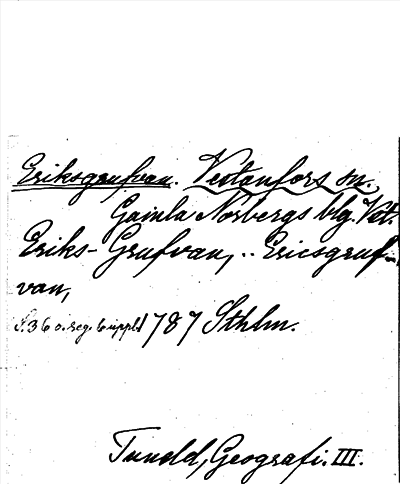 Eriksgrufvan. Vestanfors sn.
Gamla Norbergs blg. Vstm.
Eriks-Grufvan, .. Ericsgruf-
van,
S. 36 o. reg. 6 uppl 787 Sthlm.
Tuneld, Geografi. III.